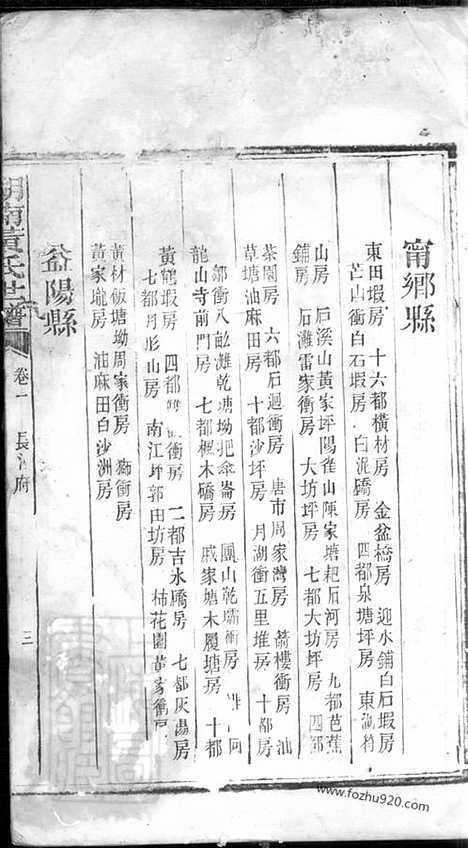 甯鄉縣
東田塅房 十六都橫材房 金盆橋房 迎水鋪白石塅房
芒山衝白石塅房 白泥礄房 四都泉塘坪房 東
山房 石溪山黃家坪陽雀山陳家塘耙石河房 九都芭蕉
鋪房 石灘雷家衝房 大坊坪房 七都大坊坪房 四都
茶園房 六都石迴衝房 唐市周家灣房 箭樓衝房 油
草塘油麻田房 十都沙坪房 月湖衝五里堆房 十都房
鄒衝八畝灘乾塘坳把傘崙房 團山乾壩衝房
龍山寺前門房 七都楓木礄房 戚家塘木履塘房 十都
黃鶴塅房 四都 衝房 二都吉水礄房 七都灰湯房
七都月形山房 南江坪郭田坊房 柿花園黃家衝房
黃材板塘坳周家衝房 獅衝房
黃家壠房 油麻田白沙洲房
益陽縣
湖南黃氏世譜 卷一 長沙府 三
www.fozhu920.com